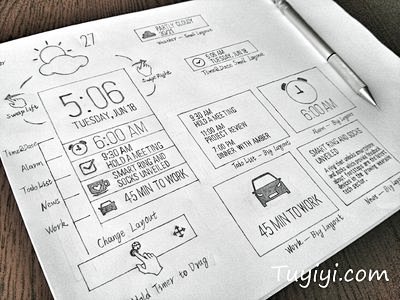 PARTLY CLOUDY
Weather - Small Layout
27
5:06 AM
TUESDAY, JUN 18
Time&Date Small Layout
Swipe Left
Swipe Right
5:06
TUESDAY, JUN 18
6:00 AM
9:30 AM
HOLD A MEETING
SMART RING AND
SOCKS UNVEILED
45 MIN TO WORK
Time&Date
Alarm
Todo List
News
Work
Change Layout
Hold Timer to Drag
9:30 AM
HOLD A MEETING
11:00 AM
PROJECT REVIEW
7:00 PM
DINNER WITH AMBER
Todo List - Big Layout
6:00 AM
Alarm - Big Layout
45 MIN TO WORK
Work - Big Layout
SMART RING AND
SOCKS UNVEILED
News - Big Layout
Tuyiyi.com